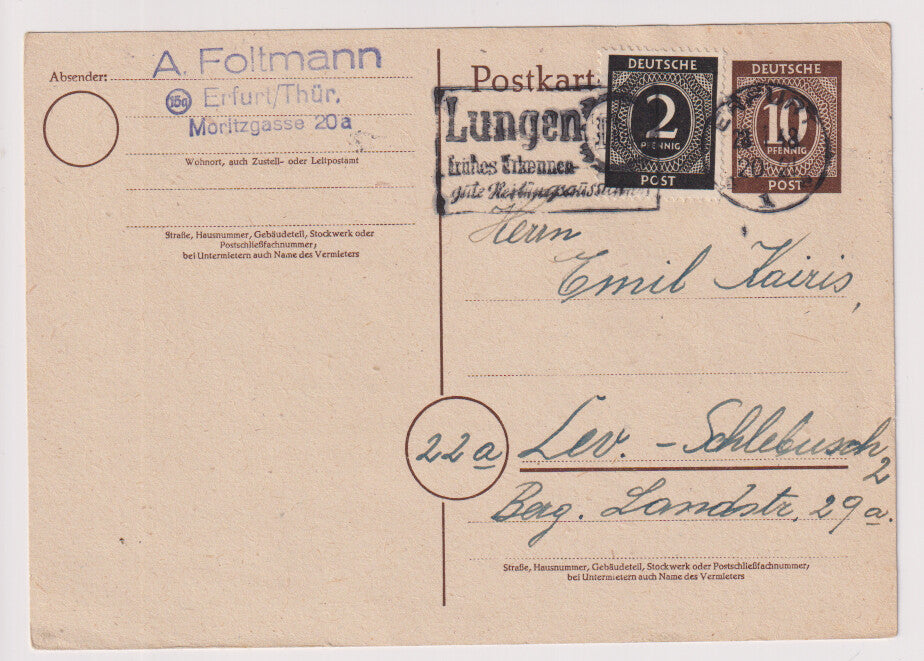 Absender:
A. Foltmann
15a Erfurt/Thür.
Moritzgasse 20a
Wohnort, auch Zustell- oder Leitpostamt
Straße, Hausnummer, Gebäudeteil, Stockwerk oder
Postschließfachnummer;
bei Untermietern auch Name des Vermieters
Postkart
Lungen
frühes Erkennen
gute
DEUTSCHE
2
PFENNIG
POST
DEUTSCHE
10
PFENNIG
POST
ERFURT
Herrn
Emil Kairis,
22a
Lev. - Schlebusch 2
Berg. Landstr. 29a.
Straße, Hausnummer, Gebäudeteil, Stockwerk oder Postschließfachnummer;
bei Untermietern auch Name des Vermieters